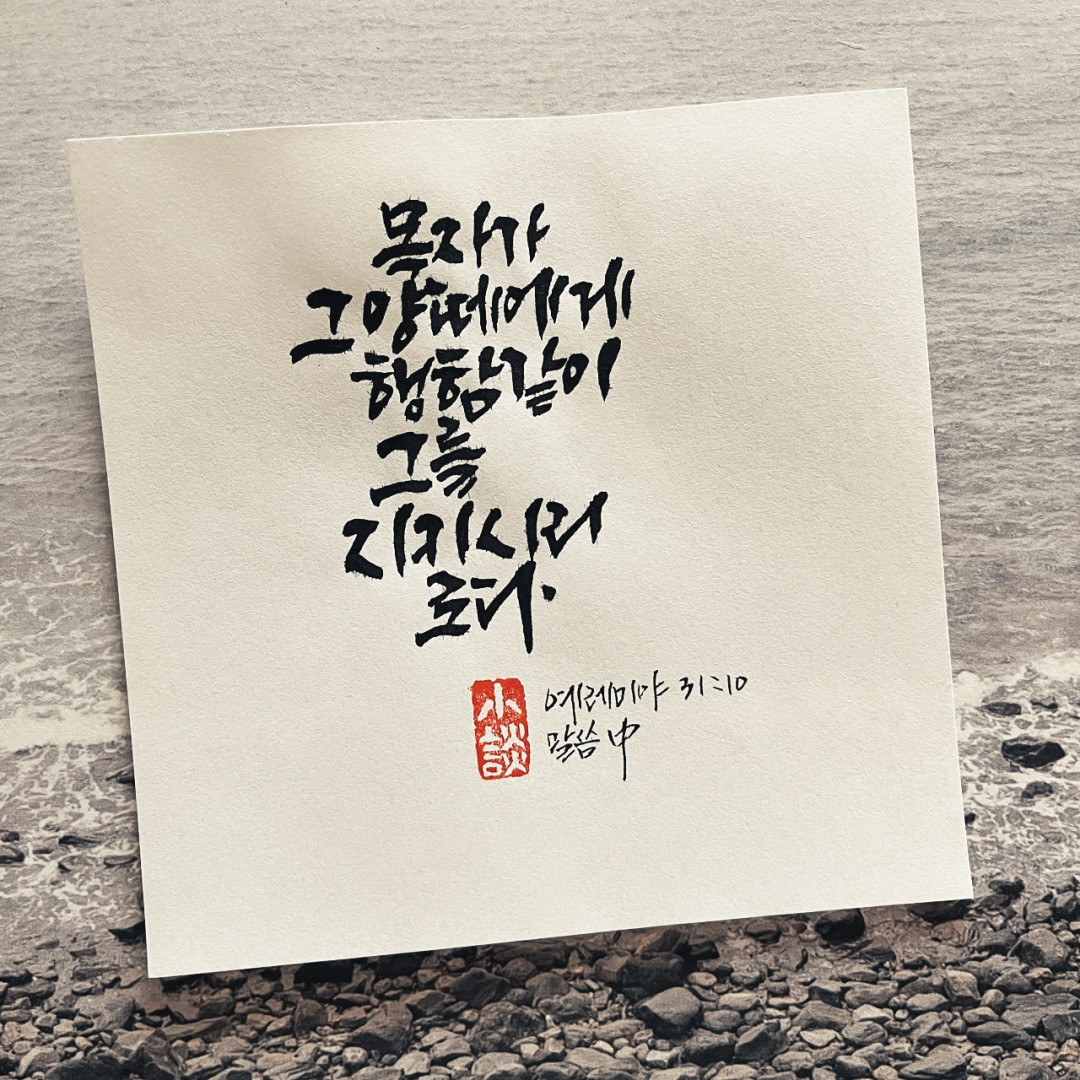 목자가
그 양 떼에게
행함 같이
그를
지키시리
로다.
小談
예레미야 31:10
말씀 中